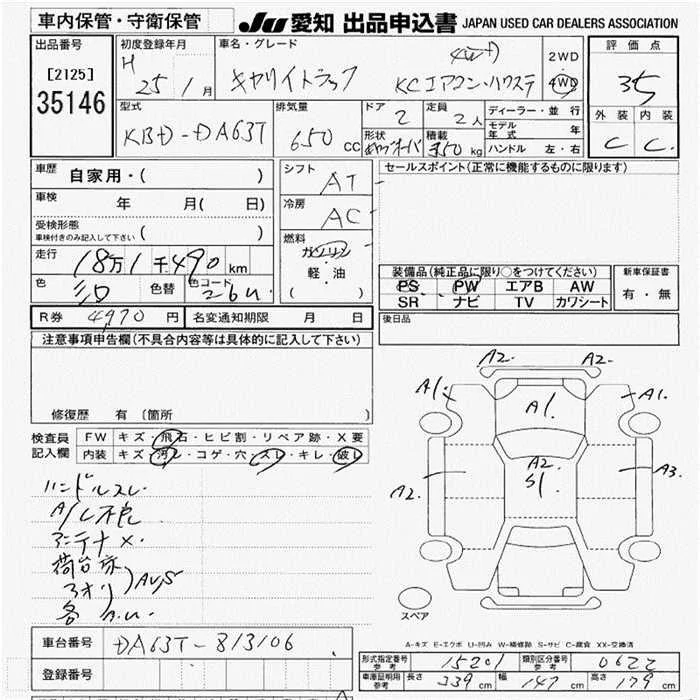 車内保管・守衛保管
JU 愛知 出品申込書 JAPAN USED CAR DEALERS ASSOCIATION
出品番号
[2125]
35146
初度登録年月
H 25 / 1月
車名・グレード
キャリイトラック
KCエアコン・パワステ
2WD
4WD
評価点
3.5
外装 内装
C C
型式
KBD-DA63T
排気量
650 cc
ドア
2
定員
2人
形状
積載
350 kg
ディーラー・並行
モデル年式 年
ハンドル 左・右
車歴 自家用・( )
車検 年 月( 日)
受検形態
車検付きのみ記入して下さい ( )
走行 18万1千490km
色 シロ 色替 色コード 26U
シフト
AT
冷房
AC
燃料
ガソリン
軽・油
( )
セールスポイント(正常に機能するものに限ります)
装備品(純正品に限り○をつけてください)
PS PW エアB AW
SR ナビ TV カワシート
新車保証書
有・無
R券 4970円 名変通知期限 月 日
後日品
注意事項申告欄(不具合内容等は具体的に記入して下さい)
修復歴 有〔箇所
検査員記入欄
FW キズ・飛石・ヒビ割・リペア跡・X要
内装 キズ・汚レ・コゲ・穴・スレ・キレ・破レ
ハンドルスレ
A/C不良
アンテナ×
荷台床
アオリ
各 A.U.
A2. A2.
A1. A1.
A1.
A2.
S1.
A2. A3.
スペア
A-キズ E-エクボ U-凹み W-補修跡 S-サビ C-腐食 XX-交換済
車台番号 DA63T-813106
登録番号
形式指定番号参考 15201 類別区分番号参考 0622
車庫証明用参考 長さ 339cm 幅 147cm 高さ 179cm